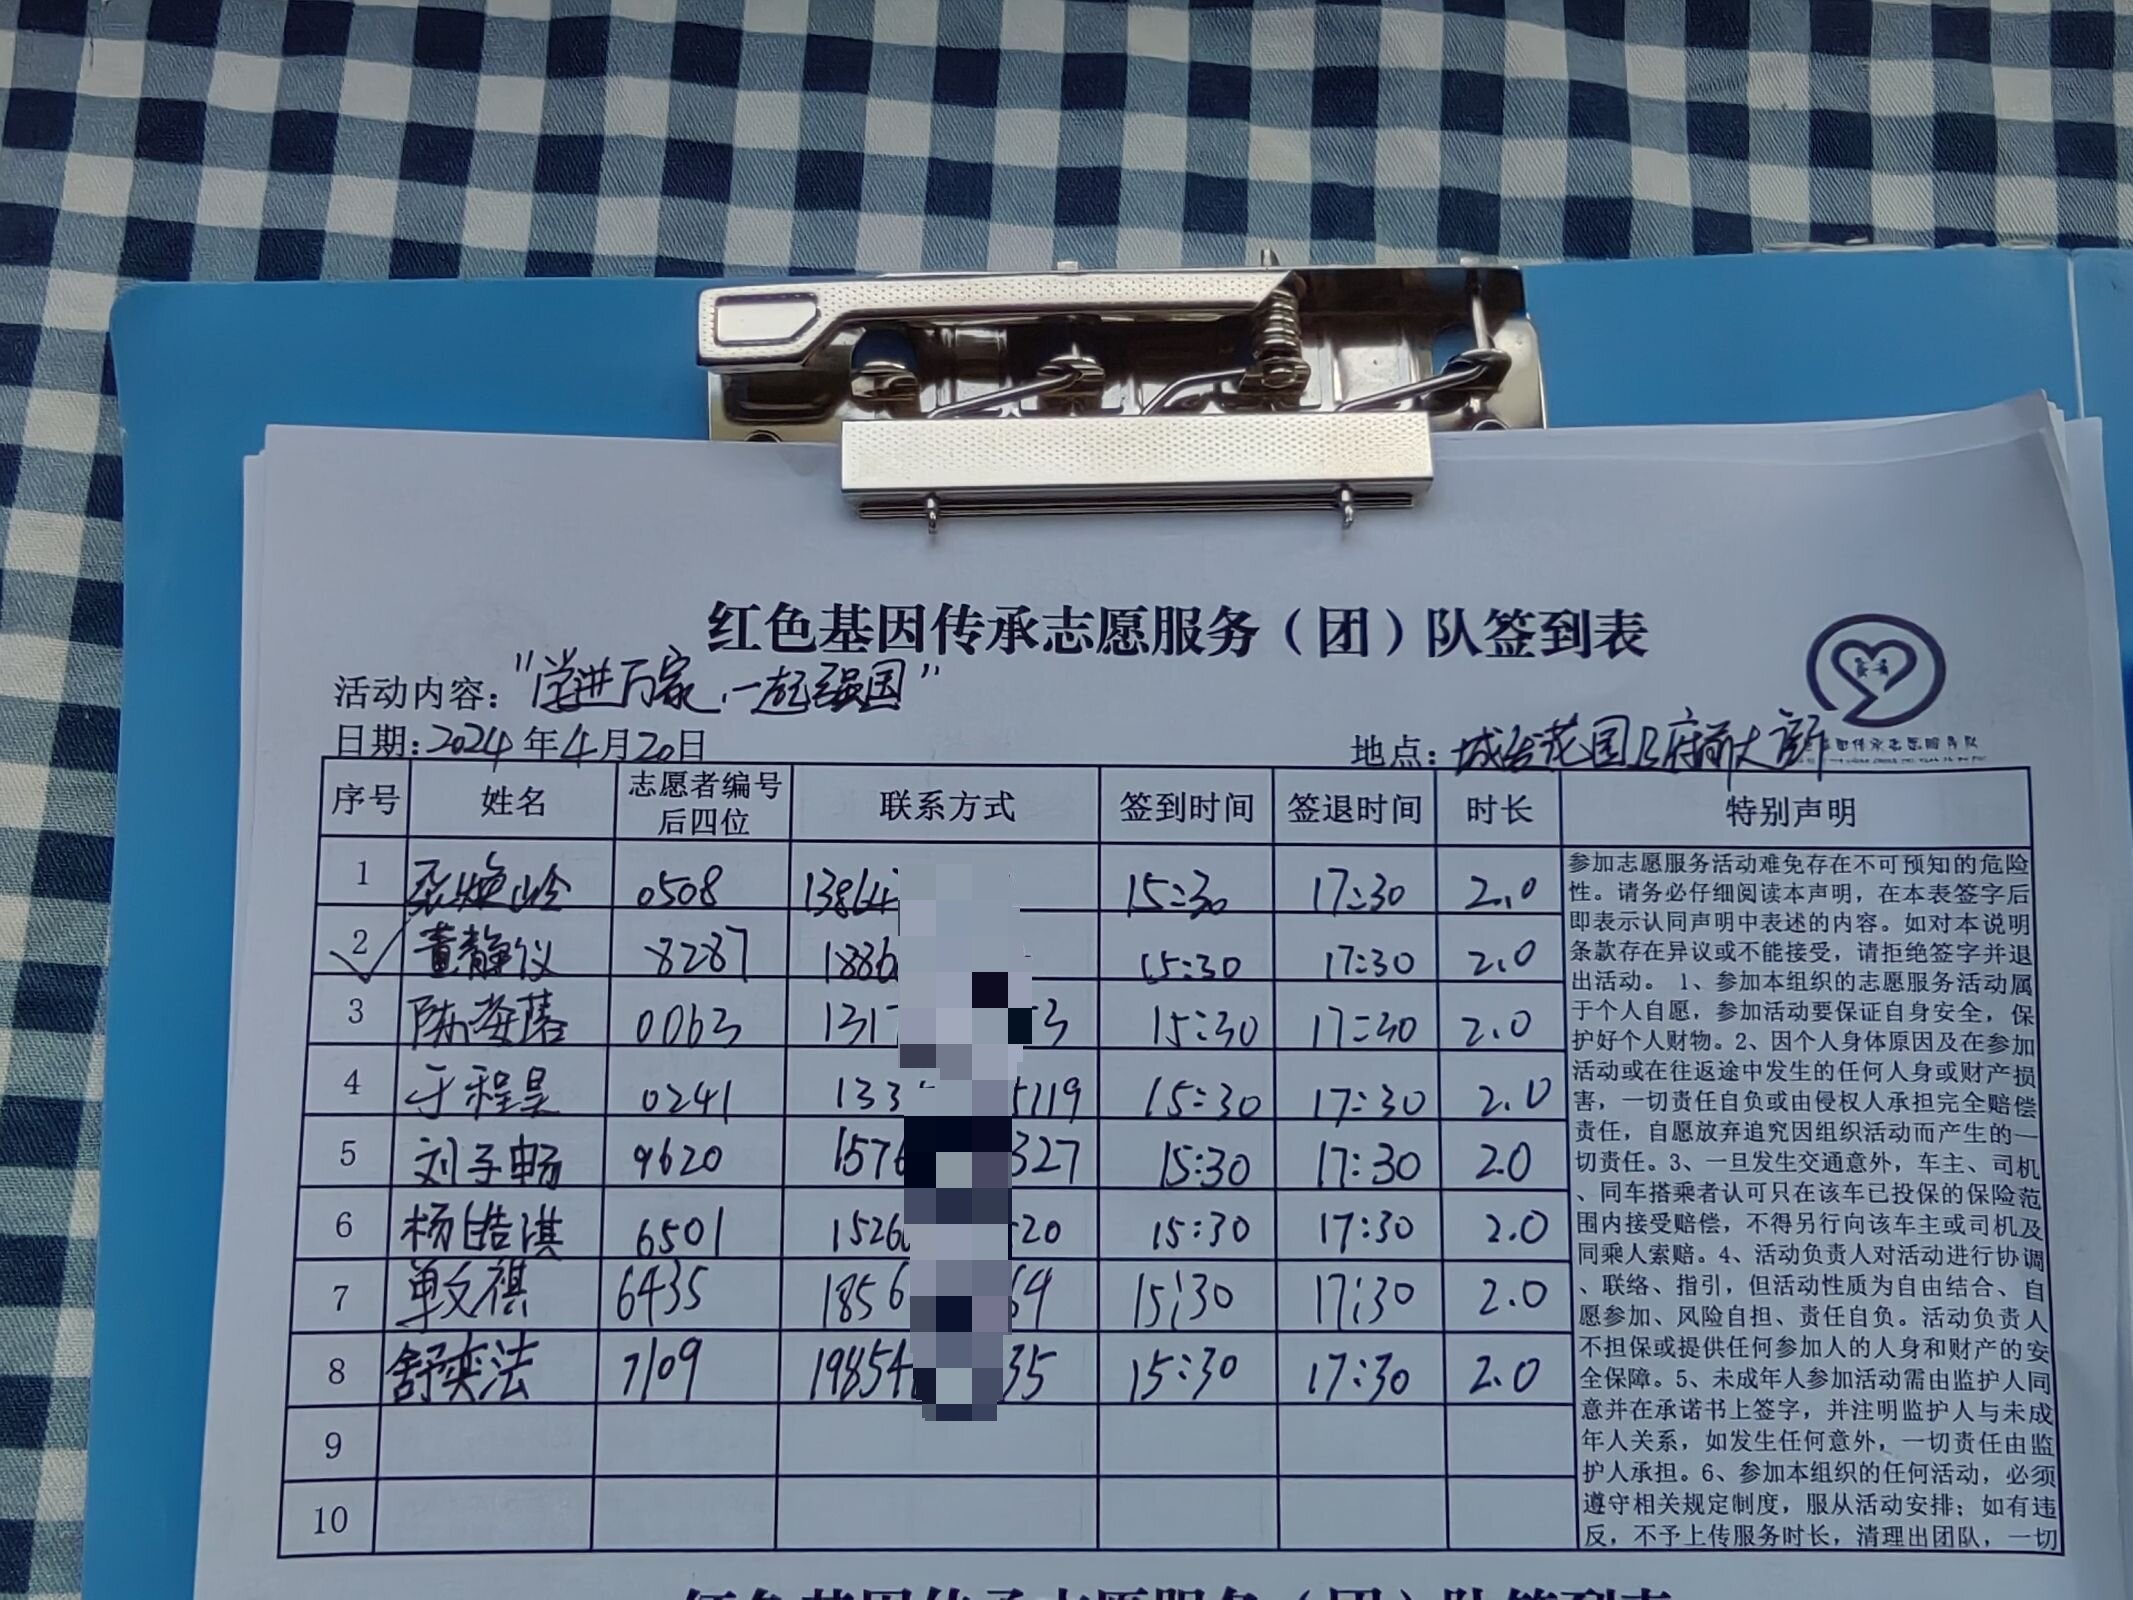 红色基因传承志愿服务（团）队签到表
活动内容："学进万家,一起强国"
日期:2024年4月20日 地点:城 花园 府前大
序号 姓名 志愿者编号后四位 联系方式 签到时间 签退时间 时长 特别声明
1 0508 13864 15:30 17:30 2.0
2 董静仪 8287 1886 15:30 17:30 2.0
3 0063 1317 3 15:30 17:30 2.0
4 于程昊 0241 133 5119 15:30 17:30 2.0
5 刘子畅 9620 1576 327 15:30 17:30 2.0
6 杨皓淇 6501 1526 20 15:30 17:30 2.0
7 单文祺 6435 1856 64 15:30 17:30 2.0
8 舒奕法 7109 19854 35 15:30 17:30 2.0
9
10
参加志愿服务活动难免存在不可预知的危险
性。请务必仔细阅读本声明，在本表签字后
即表示认同声明中表述的内容。如对本说明
条款存在异议或不能接受，请拒绝签字并退
出活动。 1、参加本组织的志愿服务活动属
于个人自愿，参加活动要保证自身安全，保
护好个人财物。2、因个人身体原因及在参加
活动或在往返途中发生的任何人身或财产损
害，一切责任自负或由侵权人承担完全赔偿
责任，自愿放弃追究因组织活动而产生的一
切责任。3、一旦发生交通意外，车主、司机
、同车搭乘者认可只在该车已投保的保险范
围内接受赔偿，不得另行向该车主或司机及
同乘人索赔。4、活动负责人对活动进行协调
、联络、指引，但活动性质为自由结合、自
愿参加、风险自担、责任自负。活动负责人
不担保或提供任何参加人的人身和财产的安
全保障。5、未成年人参加活动需由监护人同
意并在承诺书上签字，并注明监护人与未成
年人关系，如发生任何意外，一切责任由监
护人承担。6、参加本组织的任何活动，必须
遵守相关规定制度，服从活动安排；如有违
反，不予上传服务时长，清理出团队，一切
红色基因传承志愿服务（团）队签到表